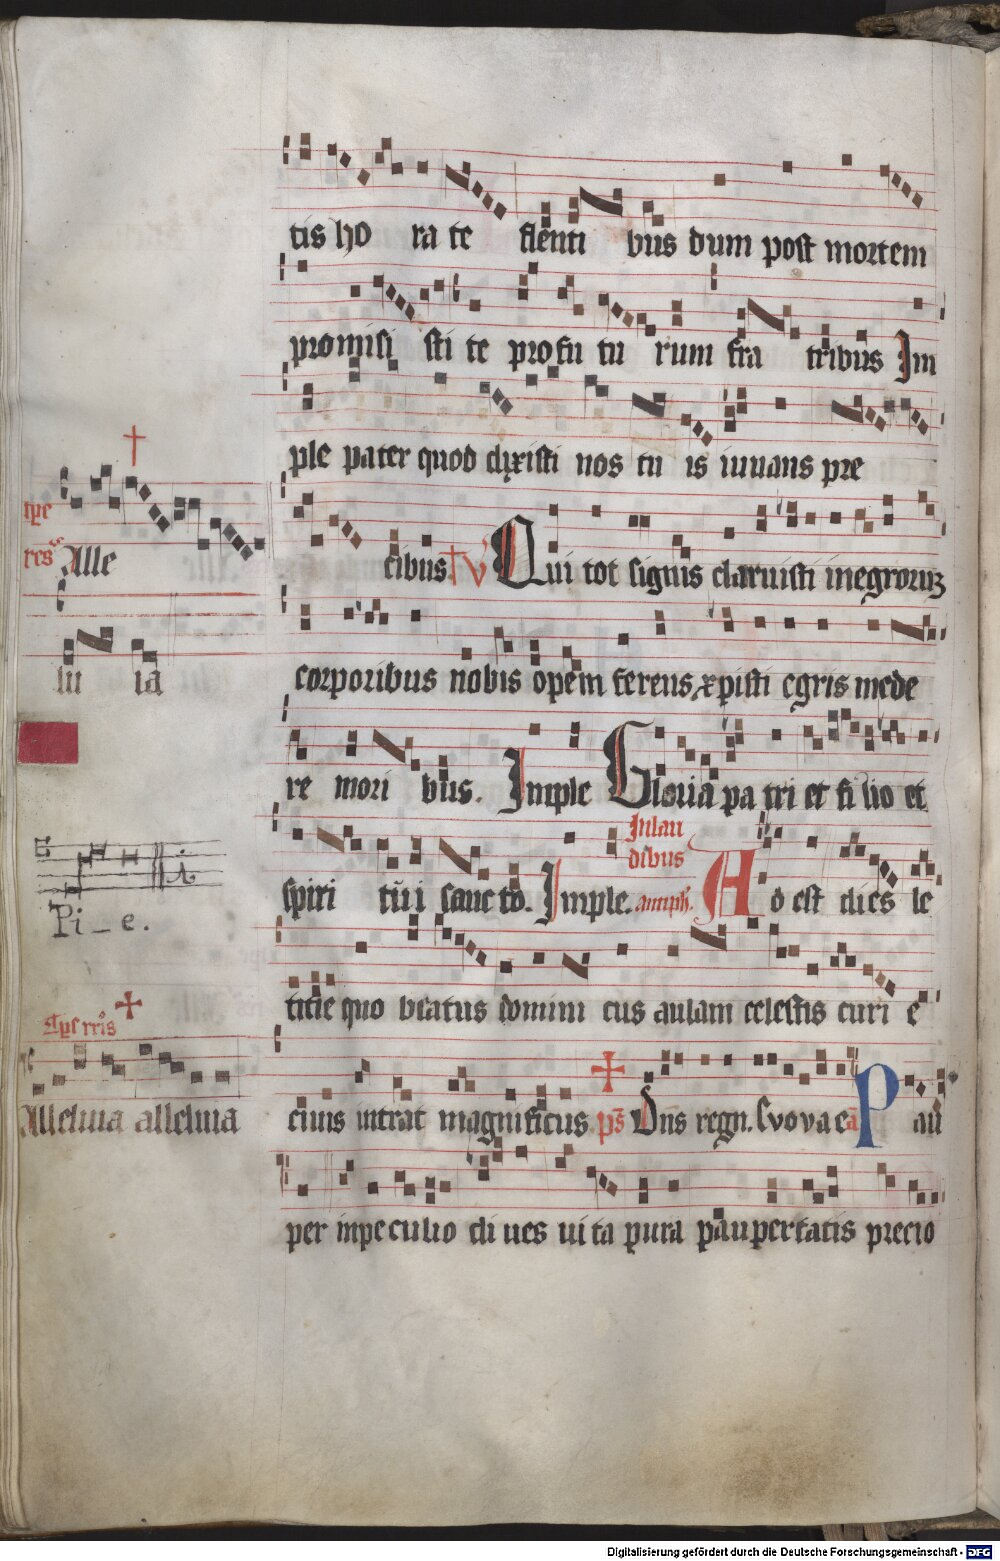 tis ho ra te flenti bus dum post mortem
promisi sti te profu tu rum fra tribus Im
ple pater quod dixisti nos tu is iuuans pre
cibus V Qui tot signis claruisti inegrorum
corporibus nobis opem ferens xpisti egris mede
re mori bus. Imple Gloria pa tri et fi lio et
Inlau
dibus
spiri tui i sanc to. Imple. antiph. Ad est dies le
titie quo beatus domini cus aulam celestis curi e
ciuis intrat magnificus ps Dns regn. Evovae a Pau
per inpeculio di ues ui ta pura paupertatis precio
tpe
res
Alle
lu ia
Pi_e.
Tpe rris
Alleluia alleluia
Digitalisierung gefördert durch die Deutsche Forschungsgemeinschaft - DFG